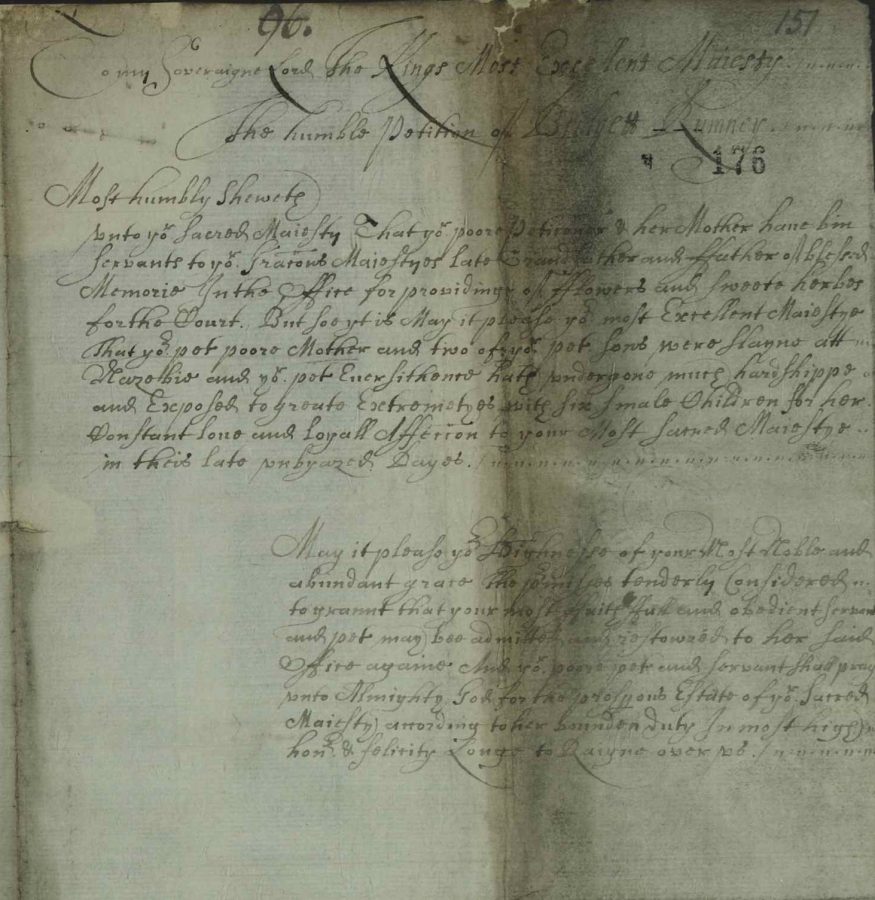 96. 151
To my Soveraigne Lord The Kings Most Excellent Maiesty
The humble Petition of Bridgett Rumney
176
Most humbly Sheweth
vnto yor. Sacred Maiesty That yor. poore Peticoner & her Mother haue bin
servants to yor. Gracous Maiestyes Late Grandfather and ffather of blessed
Memorie In the Office for providinge of fflowers and sweete herbes
for the Court. But soe yt is May it please yor. most Excellent Maiestye
That yor. pet poore Mother and two of yor. pet sons were slayne att
Nazebie and yor. pet Euersithence hath vndergone much hardshippe
and Exposed to greate Extremetyes with six smale Children for her
Constant loue and Loyall Affeccon to your Most Sacred Maiestye
in theis late vnhyared Dayes.
May it please yor. Highnesse of your Most Noble and
abundant grace The prmisses tenderly Considered
to grannt that your most faithffull and obedient servant
and pet may bee admitted and restowred to her said
Office againe And yor. poore pet and servant shall pray
vnto Almighty God for the prosprous Estate of yor. Sacred
Maiesty acording to her bounden duty In most high
honr. & felicity Longe to Raigne over vs.